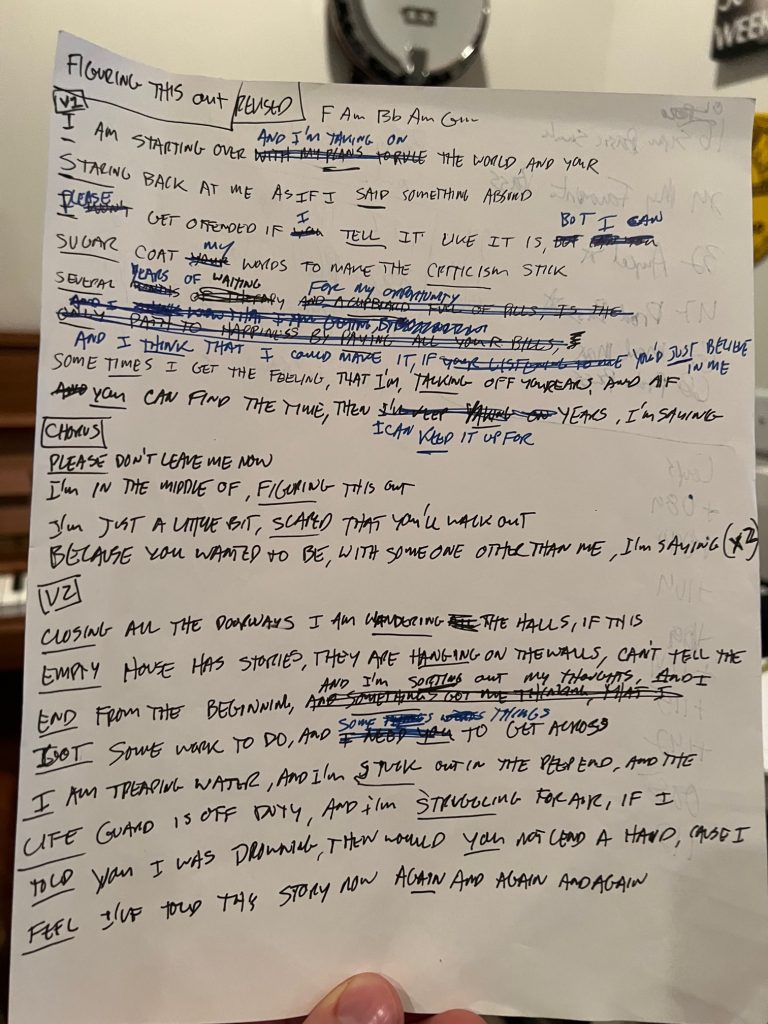 FIGURING THIS OUT REVISED
F Am Bb Am Gm
V1
AND I'M TAKING ON
I AM STARTING OVER WITH MY PLANS TO RULE THE WORLD, AND YOUR
STARING BACK AT ME AS IF I SAID SOMETHING ABSURD
PLEASE I BUT I CAN
I DON'T GET OFFENDED IF YOU TELL IT LIKE IT IS, BUT CAN YOU
MY
SUGAR COAT YOUR WORDS TO MAKE THE CRITICISM STICK
YEARS OF WAITING FOR MY OPPORTUNITY
SEVERAL OF THERAPY AND A CUPBOARD FULL OF PILLS, IS THE
AND I THAT I AM GOING
ONLY PATH TO HAPPINESS BY PAYING ALL YOUR BILLS,
AND I THINK THAT I COULD MAKE IT, IF YOUR LISTENING TO ME YOU'D JUST BELIEVE
IN ME
SOME TIMES I GET THE FEELING, THAT I'M, TALKING OFF YOUR EAR, AND IF
AND YOU CAN FIND THE TIME, THEN I'LL KEEP TALKING YEARS, I'M SAYING
I CAN KEEP IT UP FOR
CHORUS
PLEASE DON'T LEAVE ME NOW
I'M IN THE MIDDLE OF, FIGURING THIS OUT
I'M JUST A LITTLE BIT, SCARED THAT YOU'LL WALK OUT
BECAUSE YOU WANTED TO BE, WITH SOMEONE OTHER THAN ME, I'M SAYING (X2)
V2
CLOSING ALL THE DOORWAYS I AM WANDERING THE HALLS, IF THIS
EMPTY HOUSE HAS STORIES, THEY ARE HANGING ON THE WALLS, CAN'T TELL THE
AND I'M SORTING OUT MY THOUGHTS, AND I
END FROM THE BEGINNING, AND SOMETHING'S GOT ME THINKING, THAT I
SOME THINGS
GOT SOME WORK TO DO, AND I NEED YOU TO GET ACROSS
I AM TREADING WATER, AND I'M STUCK OUT IN THE DEEP END, AND THE
LIFE GUARD IS OFF DUTY, AND I'M STRUGGLING FOR AIR, IF I
TOLD YOU I WAS DROWNING, THEN WOULD YOU NOT LEND A HAND, CAUSE I
FEEL I'VE TOLD THIS STORY NOW AGAIN AND AGAIN AND AGAIN
WEEK